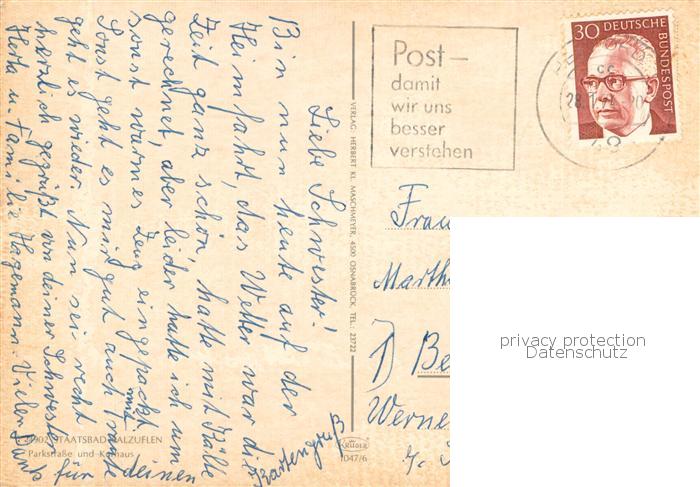 Liebe Schwester!
Bin nun heute auf der
Heimfahrt, das Wetter war die
Zeit ganz schön, hatte mit Kälte
gerechnet, aber leider hatte ich um
sonst warmes Zeug eingepackt.
Sonst geht es mir gut auch
geht es wieder. Nun sei recht
herzlich gegrüßt von deiner Schwester
Herta u. Familie Hagemann. Vielen Dank
für deinen
Kartengruß
4902 STAATSBAD SALZUFLEN
Parkstraße und Kurhaus
VERLAG: HERBERT KL. MASCHMEYER, 4500 OSNABRÜCK, TEL.: 23722
KRÜGER
1047/6
Post –
damit
wir uns
besser
verstehen
30 DEUTSCHE
BUNDESPOST
Frau
Marth
1) Be
Werne
privacy protection
Datenschutz